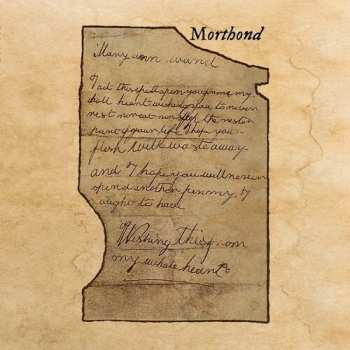 Morthond
Mary ann ward
I act this spell upon you from my
holl heart wishing you to never
rest nor eat nor sleep the restern
part of your life I hope your
flesh will waste away
and I hope you will never
spend another penny I
ought to have
Wishing this from
my whole heart